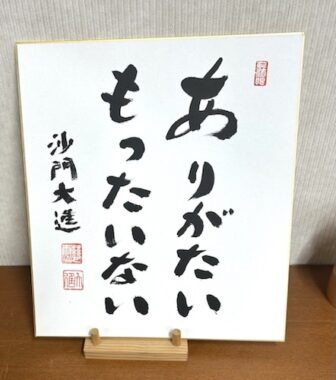 ありがたい
もったいない
沙門大進